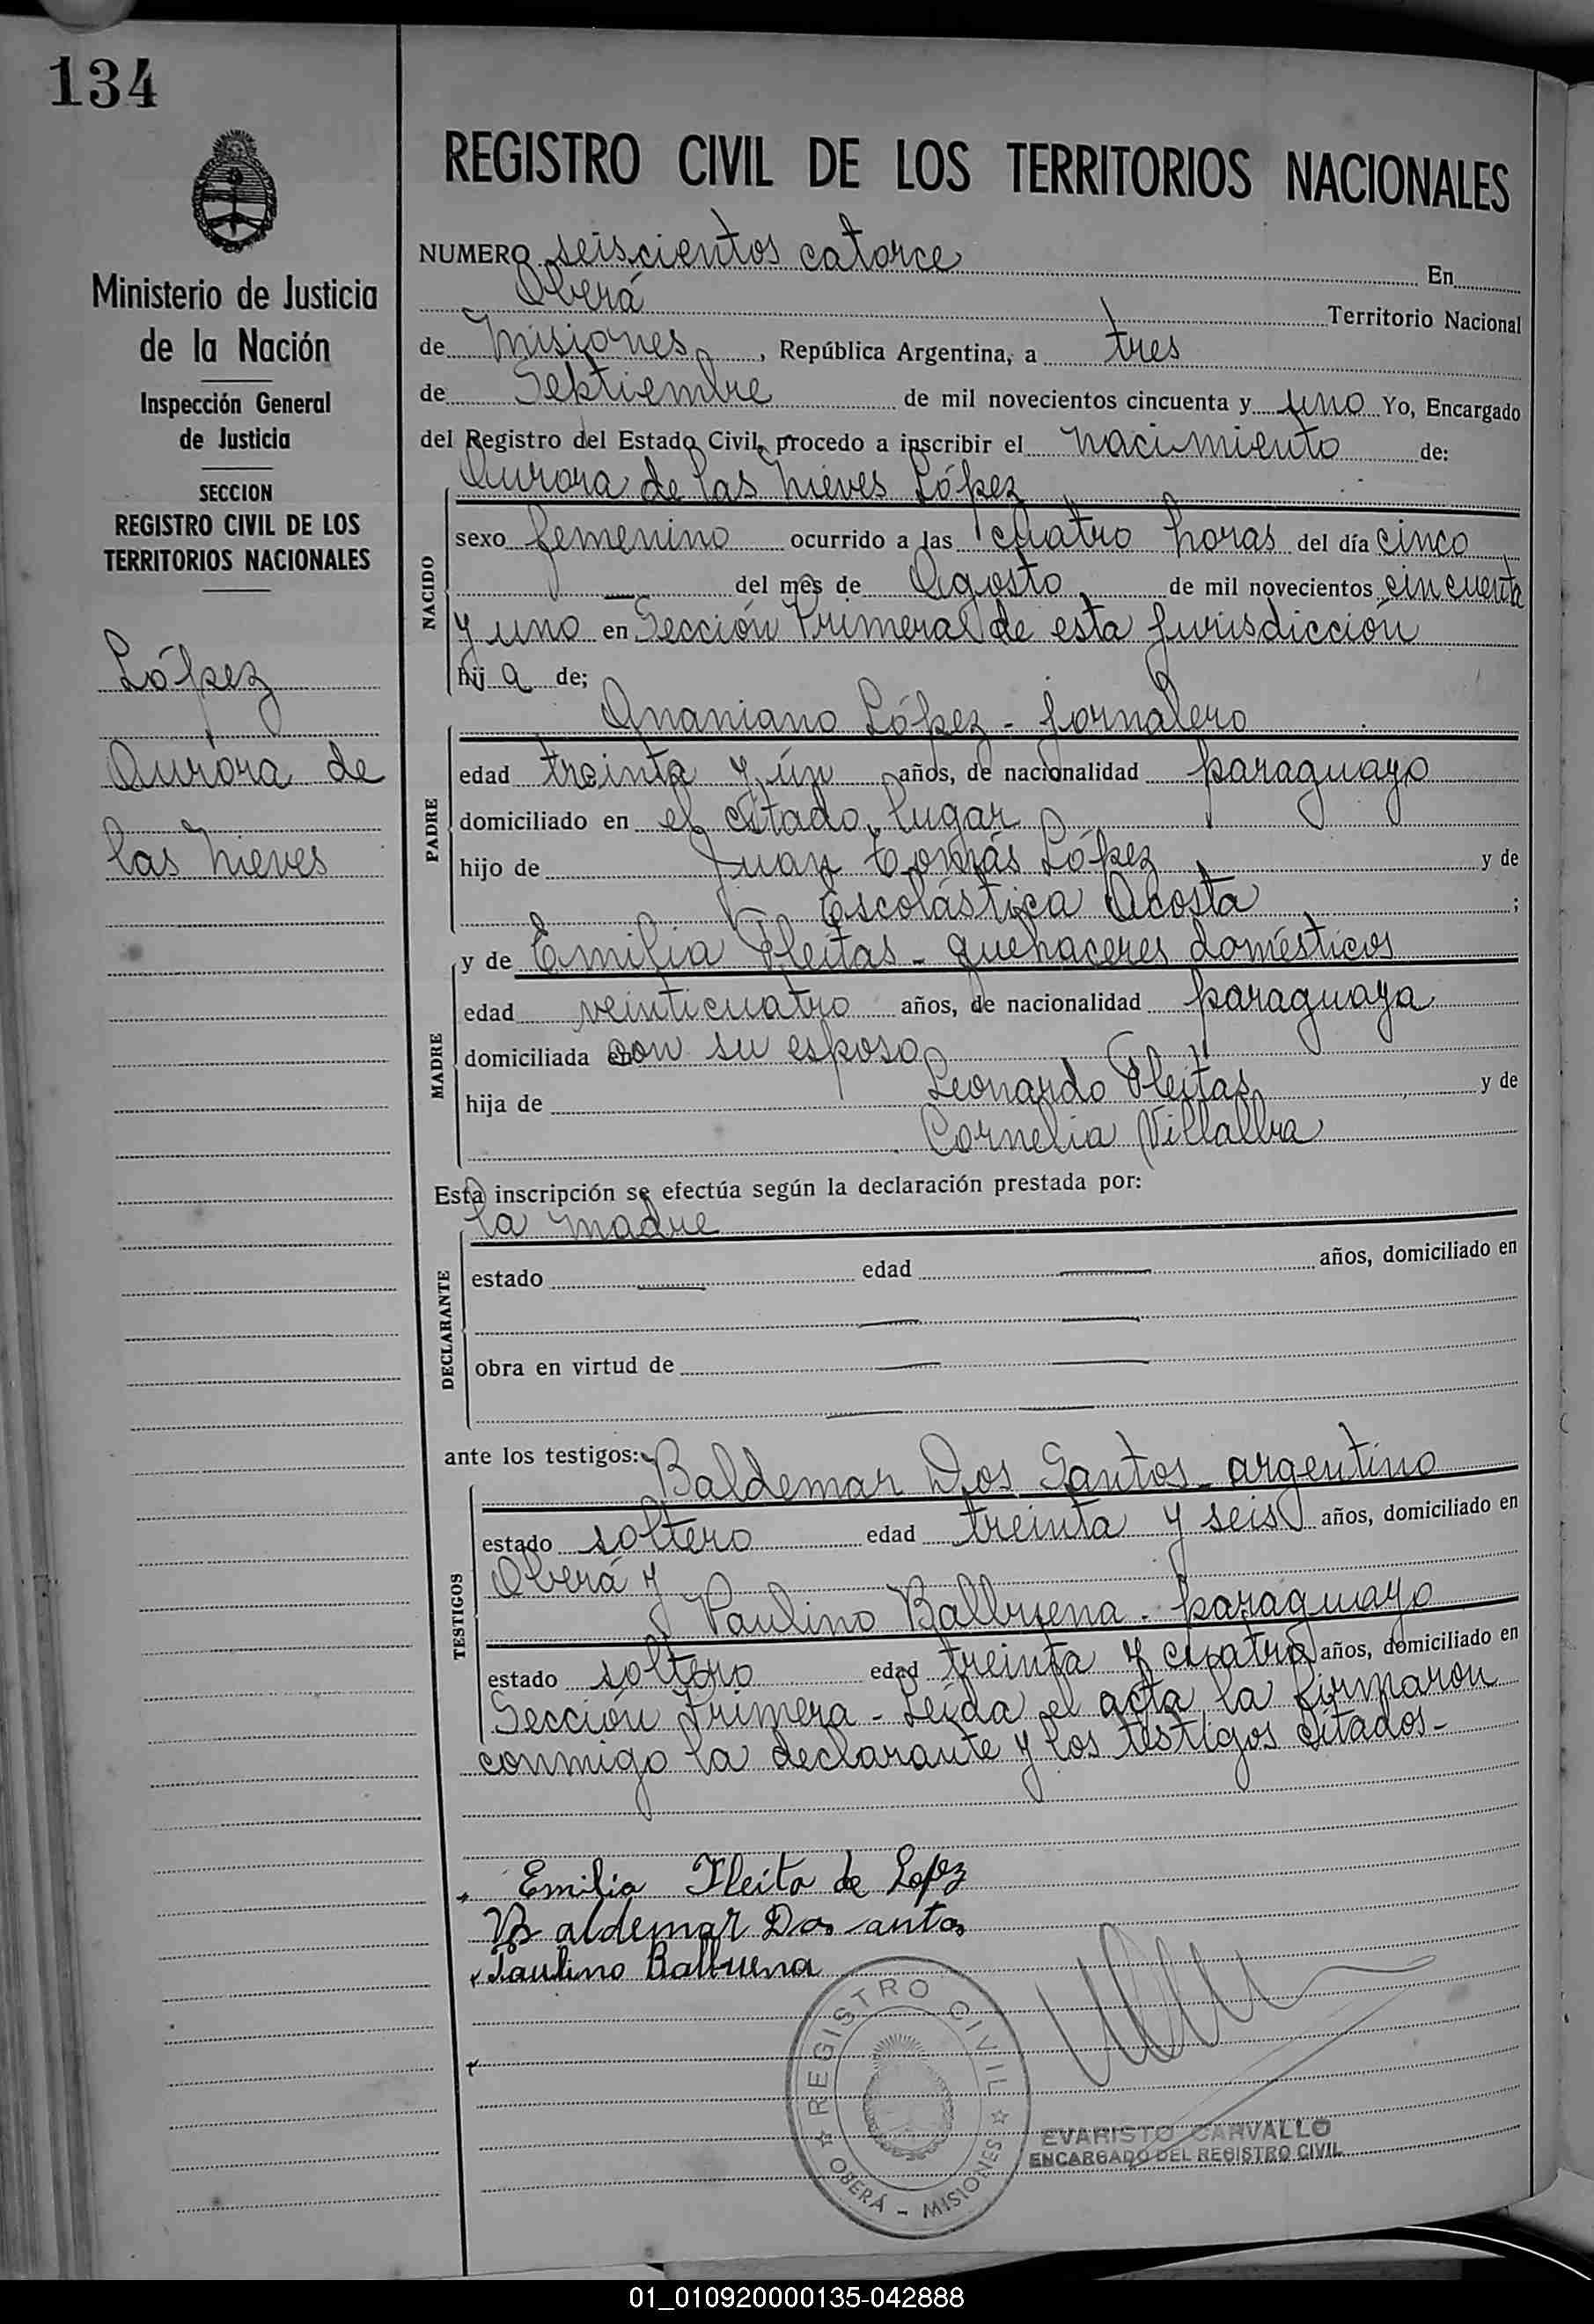 134
Ministerio de Justicia
de la Nación
Inspección General
de Justicia
SECCION
REGISTRO CIVIL DE LOS
TERRITORIOS NACIONALES
López
Aurora de
las Nieves
REGISTRO CIVIL DE LOS TERRITORIOS NACIONALES
NUMERO seiscientos catorce En
Oberá Territorio Nacional
de Misiones, República Argentina, a tres
de Septiembre de mil novecientos cincuenta y uno Yo, Encargado
del Registro del Estado Civil, procedo a inscribir el nacimiento de:
Aurora de las Nieves López
NACIDO
sexo femenino ocurrido a las cuatro horas del día cinco
del mes de Agosto de mil novecientos cincuenta
y uno en Sección Primera de esta jurisdicción
hij a de;
Ananiano López - jornalero
PADRE
edad treinta y ún años, de nacionalidad paraguayo
domiciliado en el citado lugar
hijo de Juan Tomás López y de
Escolástica Acosta ;
y de Emilia Fleitas - quehaceres domésticos
MADRE
edad veinticuatro años, de nacionalidad paraguaya
domiciliada con su esposo
hija de Leonardo Fleitas y de
Cornelia Villalba
Esta inscripción se efectúa según la declaración prestada por:
la madre
DECLARANTE
estado edad años, domiciliado en
obra en virtud de
ante los testigos: Baldemar Dos Santos - argentino
TESTIGOS
estado soltero edad treinta y seis años, domiciliado en
Oberá y
Paulino Balbuena - paraguayo
estado soltero edad treinta y cuatro años, domiciliado en
Sección Primera - Leída el acta la firmaron
conmigo la declarante y los testigos citados -
Emilia Fleita de Lopez
Baldemar Dos antos
Paulino Balbuena
REGISTRO CIVIL
OBERÁ - MISIONES
EVARISTO CARVALLO
ENCARGADO DEL REGISTRO CIVIL
01_010920000135-042888